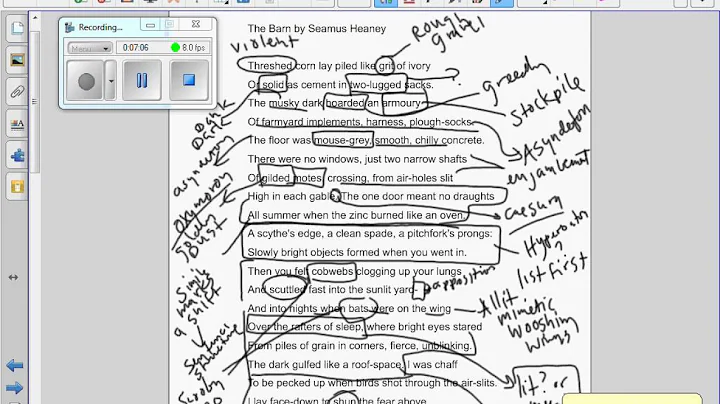 Recording...
Menu
00:07:06
8.0 fps
The Barn by Seamus Heaney
violent
Rough
gravel
Threshed corn lay piled like grit of ivory
Or solid as cement in two-lugged sacks.
?
greedy
The musky dark hoarded an armoury
stockpile
Of farmyard implements, harness, plough-socks.
Dark
Dark
Asyndeton
The floor was mouse-grey, smooth, chilly concrete.
There were no windows, just two narrow shafts
enjambment
asyndeton
Of gilded motes, crossing, from air-holes slit
Oxymoron
High in each gable. The one door meant no draughts
Dust
All summer when the zinc burned like an oven.
caesura
A scythe's edge, a clean spade, a pitchfork's prongs:
Slowly bright objects formed when you went in.
list first
Then you felt cobwebs clogging up your lungs
Simile
marks
a shift
And scuttled fast into the sunlit yard-
apposition
And into nights when bats were on the wing
Allit
mimetic
wooshing
wings
Over the rafters of sleep, where bright eyes stared
From piles of grain in corners, fierce, unblinking.
The dark gulfed like a roof-space. I was chaff
lit? or
To be pecked up when birds shot through the air-slits.
I lay face-down to shun the fear above.